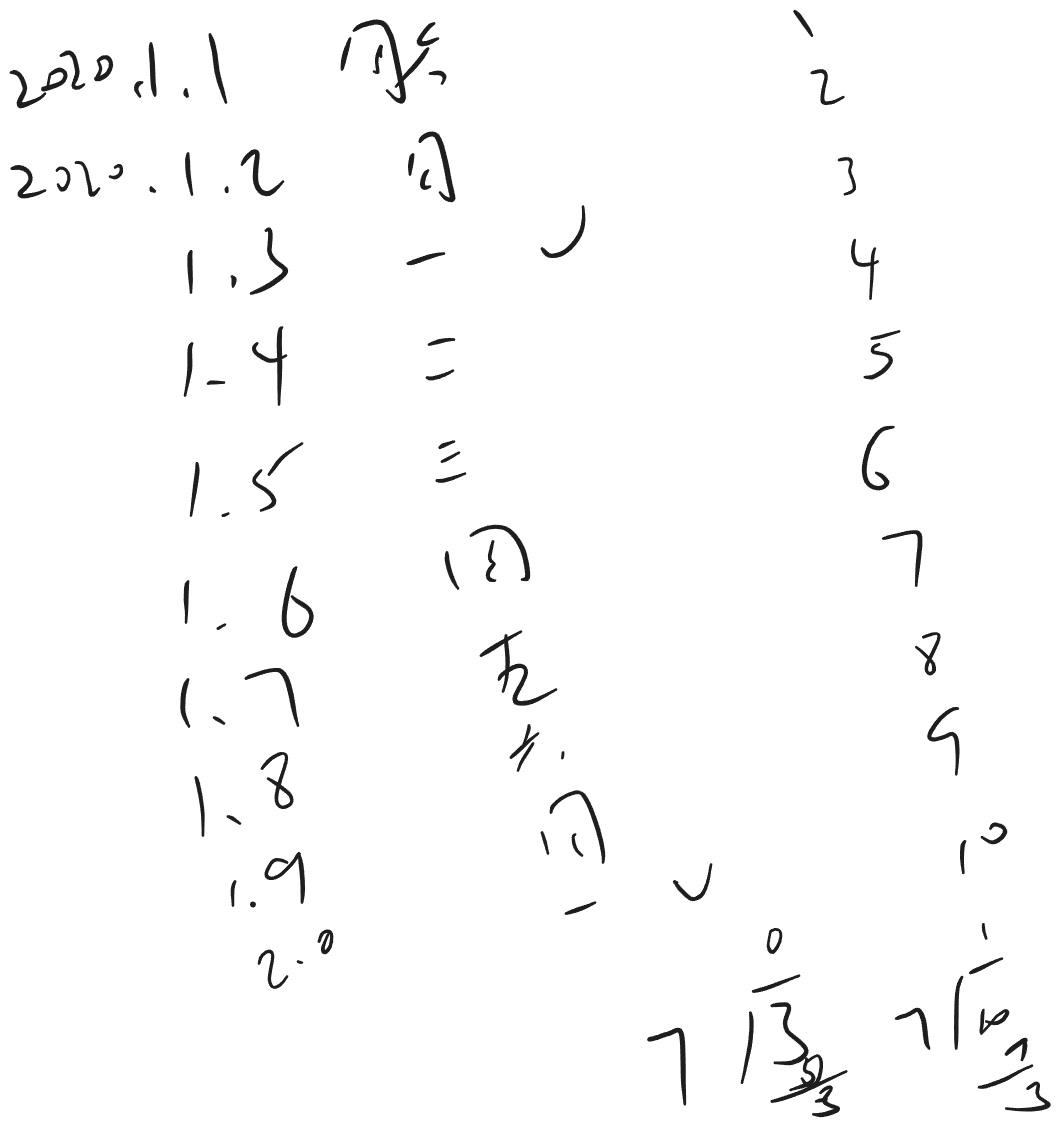 2020.1.1 周六 1
2
2020.1.2 日 3
1.3 一 4
1.4 二 5
1.5 三 6
1.6 四 7
1.7 五 8
1.8 六 9
1.9 日 10
2.0 一
0 1
7 3 7 10
0 7
3 3